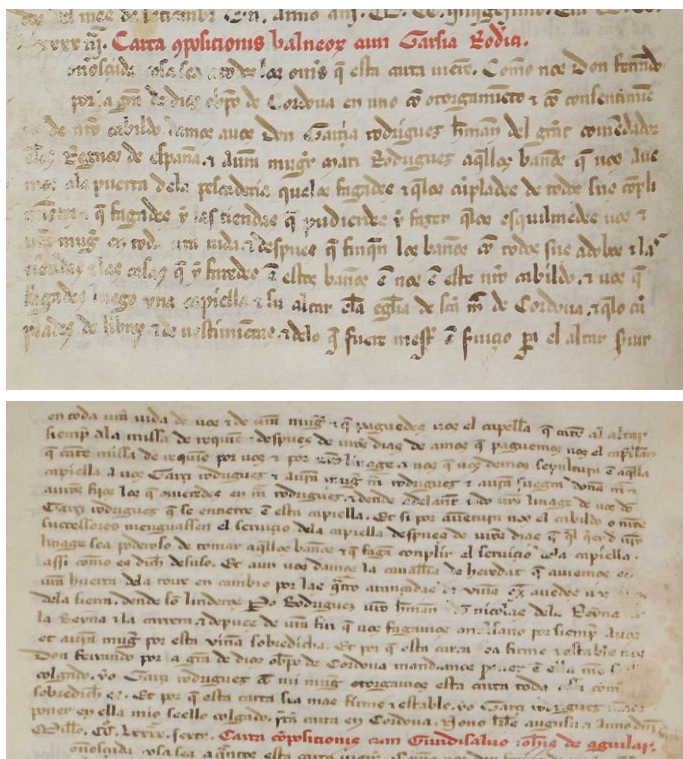 del mes de setiembr
Carta cposicionis balneor cum Garsia Rodici.
cosa sea a todos los omes q̃ esta carta vierẽ. Como nos Don ferrãdo
por la grã de dios obpo de Cordova en uno cõ otorgamiẽto & cõ consentimiẽ
de nr̃o cabildo damos avos Don Garçia rodrigues hm̃ano del grãt comẽdador
Regnos de espana. & avr̃a mugr̃ mari Rodrigues aq̃llos baños q̃ nos ave
mos ala puerta dela pescaderia quelos fagades & q̃los cũplades de todo sue cõpli
q̃ fagades y las tiendas q̃ pudierdes y fazer q̃los esquilmedes vos &
mugr̃ en toda vr̃a vida. & despues q̃ finq̃n los baños cõ todos sus adobos & las
tiendas & las casas q̃ y fizierdes ẽ estos baños ẽ nos ẽ este nr̃o cabildo. & vos q̃
fagades luego una capiella & su altar ẽla eglia de scã m̃ de Cordova. & q̃lo cũ
plades de libros & de vestimiẽtas. & delo q̃ fuere mestr̃ ẽ seruiçio pa el altar seruir
en toda vr̃a vida de vos & de vr̃a mugr̃ & q̃ paguedes vos el capellã q̃ cãte al altar
siempr̃ ala missa de requiẽ & despues de vr̃os dias de amos q̃ paguemos nos el capellan
q̃ cãte missa de requiẽ por vos & por vr̃o linage. & nos q̃ vos demos sepultura ẽ aq̃lla
capiella a vos Garçi rodrigues & avr̃a mugr̃ m̃ rodrigues & avr̃a suegra doña m̃ &
avr̃os fijos los q̃ ovierdes en m̃ rodrigues. & dende adelant & do vr̃o linage de vos dõ
Garçi rodrigues q̃ se entierre ẽ esta capiella. Et si por aventura nos el cabildo o nr̃os
successores menguassen el seruiçio dela capiella despues de vr̃os dias q̃ q̃l q̃er d vr̃o
linage sea poderoso de tomar aq̃llos baños & q̃ faga conplir el seruiçio dela capiella.
assi como es dich̃ desuso. Et aun vos damos la cavalleria de heredat q̃ aviemos
vr̃a huerta dela torre en cambio por las q̃tro arançadas de viña q̃ avedes
dela sierra. donde los linderos Po Rodrigues vr̃o hm̃ano nicolas dela Reyna
la Reyna & la carrera. & depues de vr̃a fin q̃ vos fagamos aniversario por siempr̃ avos
et avr̃a mugr̃ por esta viña sobredicha. Et por q̃ esta carta sea firme & estable nos
Don ferrando por la grã de dios obpo de Cordova mandamos poner ẽ ella nr̃o
colgado. yo Garçi rodrigues & mi mugr̃ otorgamos esta carta toda assi com
sobredich̃ es. Et por q̃ esta carta sea mas firme & estable. yo Garçi rodrigues
poner en ella mio seello colgado. fcã carta en Cordova. Nono klẽ augusti. Anno dñi
Millo. CCo. Lxxx. sexto. Carta cõposicionis cum Gundisalvo iohis de aguilar.
cosa sea a quãtos esta carta vierẽ. Como nos Don ferrãdo